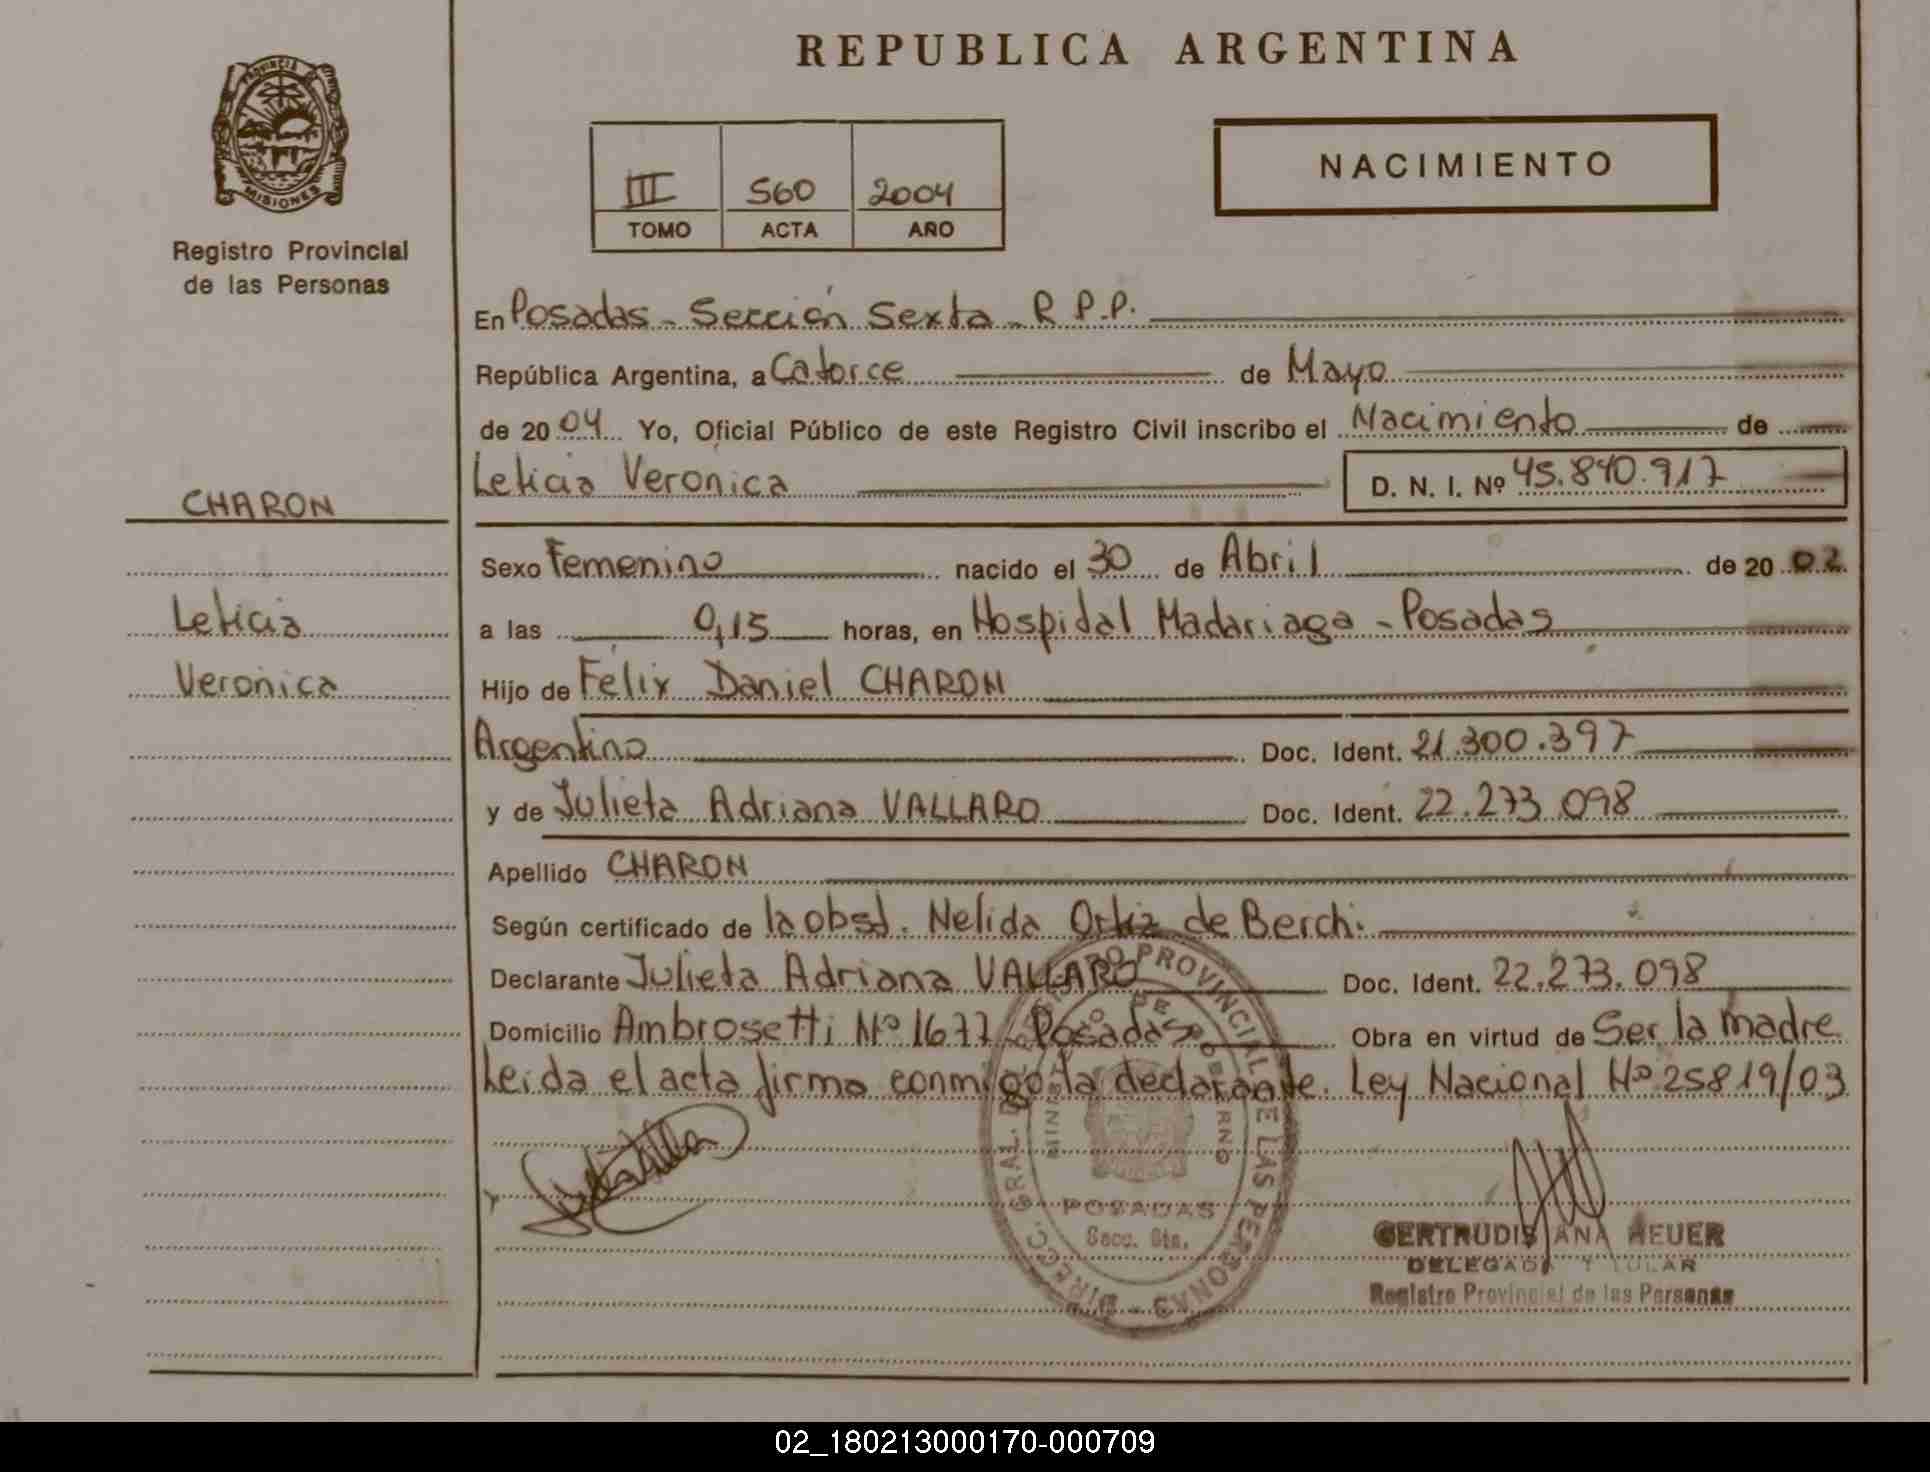 REPUBLICA ARGENTINA
PROVINCIA DE
MISIONES
Registro Provincial
de las Personas
III 560 2004
TOMO ACTA AÑO
NACIMIENTO
CHARON
Leticia
Veronica
En Posadas - Sección Sexta - R P.P.
República Argentina, a Catorce de Mayo
de 2004 Yo, Oficial Público de este Registro Civil inscribo el Nacimiento de
Leticia Veronica D. N. I. Nº 45.840.917
Sexo Femenino nacido el 30 de Abril de 2002
a las 0,15 horas, en Hospital Madariaga - Posadas
Hijo de Félix Daniel CHARON
Argentino Doc. Ident. 21.300.397
y de Julieta Adriana VALLARO Doc. Ident. 22.273.098
Apellido CHARON
Según certificado de la obst. Nelida Ortiz de Berchi.
Declarante Julieta Adriana VALLARO Doc. Ident. 22.273.098
Domicilio Ambrosetti Nº 1677 - Posadas Obra en virtud de Ser la madre
Leida el acta firma conmigo la declarante. Ley Nacional Nº 25819/03
DIRECC. GRAL. DE REGISTRO PROVINCIAL DE LAS PERSONAS
MINISTERIO DE GOBIERNO
POSADAS
Secc. 6ta.
GERTRUDIS ANA HEUER
DELEGADA TITULAR
Registro Provincial de las Personas
02_180213000170-000709